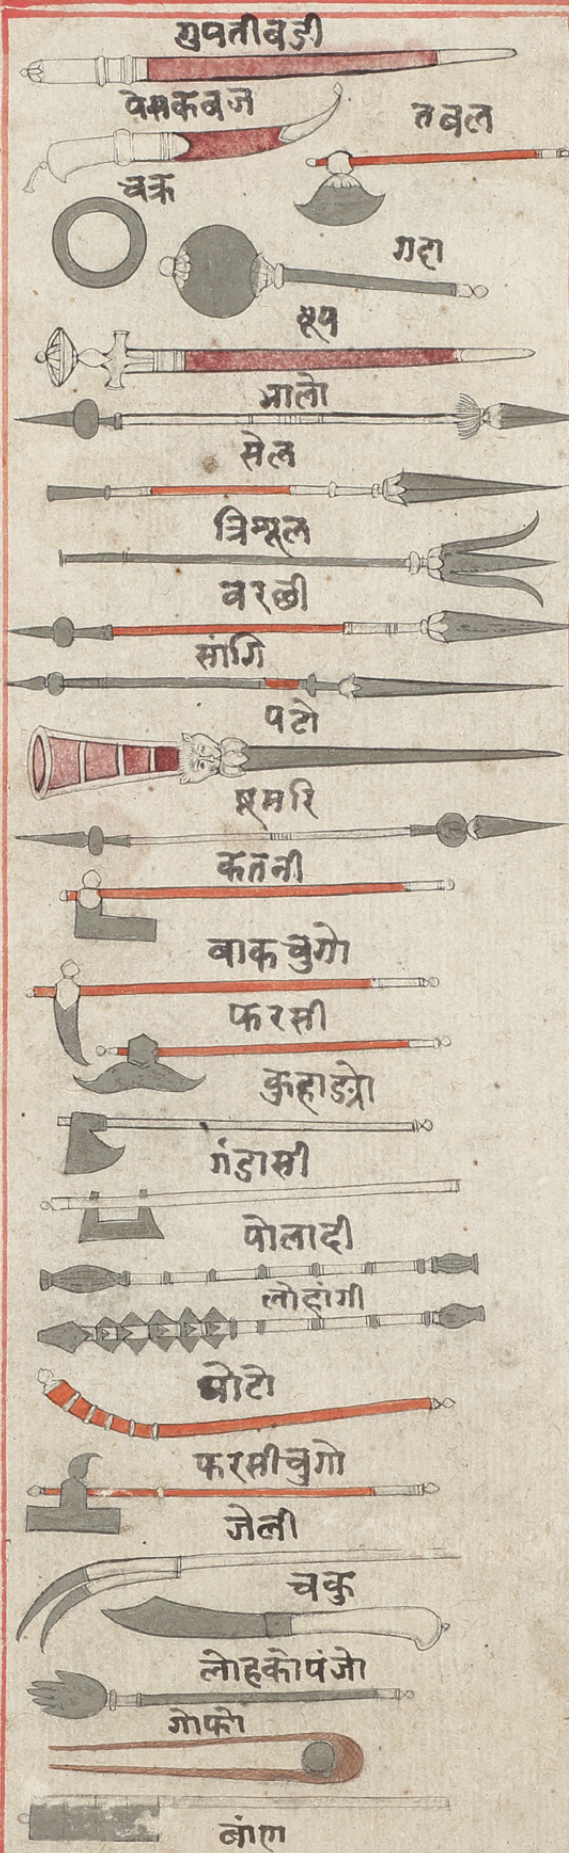 गुपतीवडी
पेसकबज
तबल
चक्र
गदा
षूप
भालो
सेल
त्रिशूल
वरछी
सांगि
पटो
षूमरि
कतनी
वाकचुगो
फरसी
कुहाड्रो
गंडासी
पोलादी
लोहांगी
घोटो
फरसीचुगो
जेली
चकु
लोहकोपंजो
गोफो
बांण